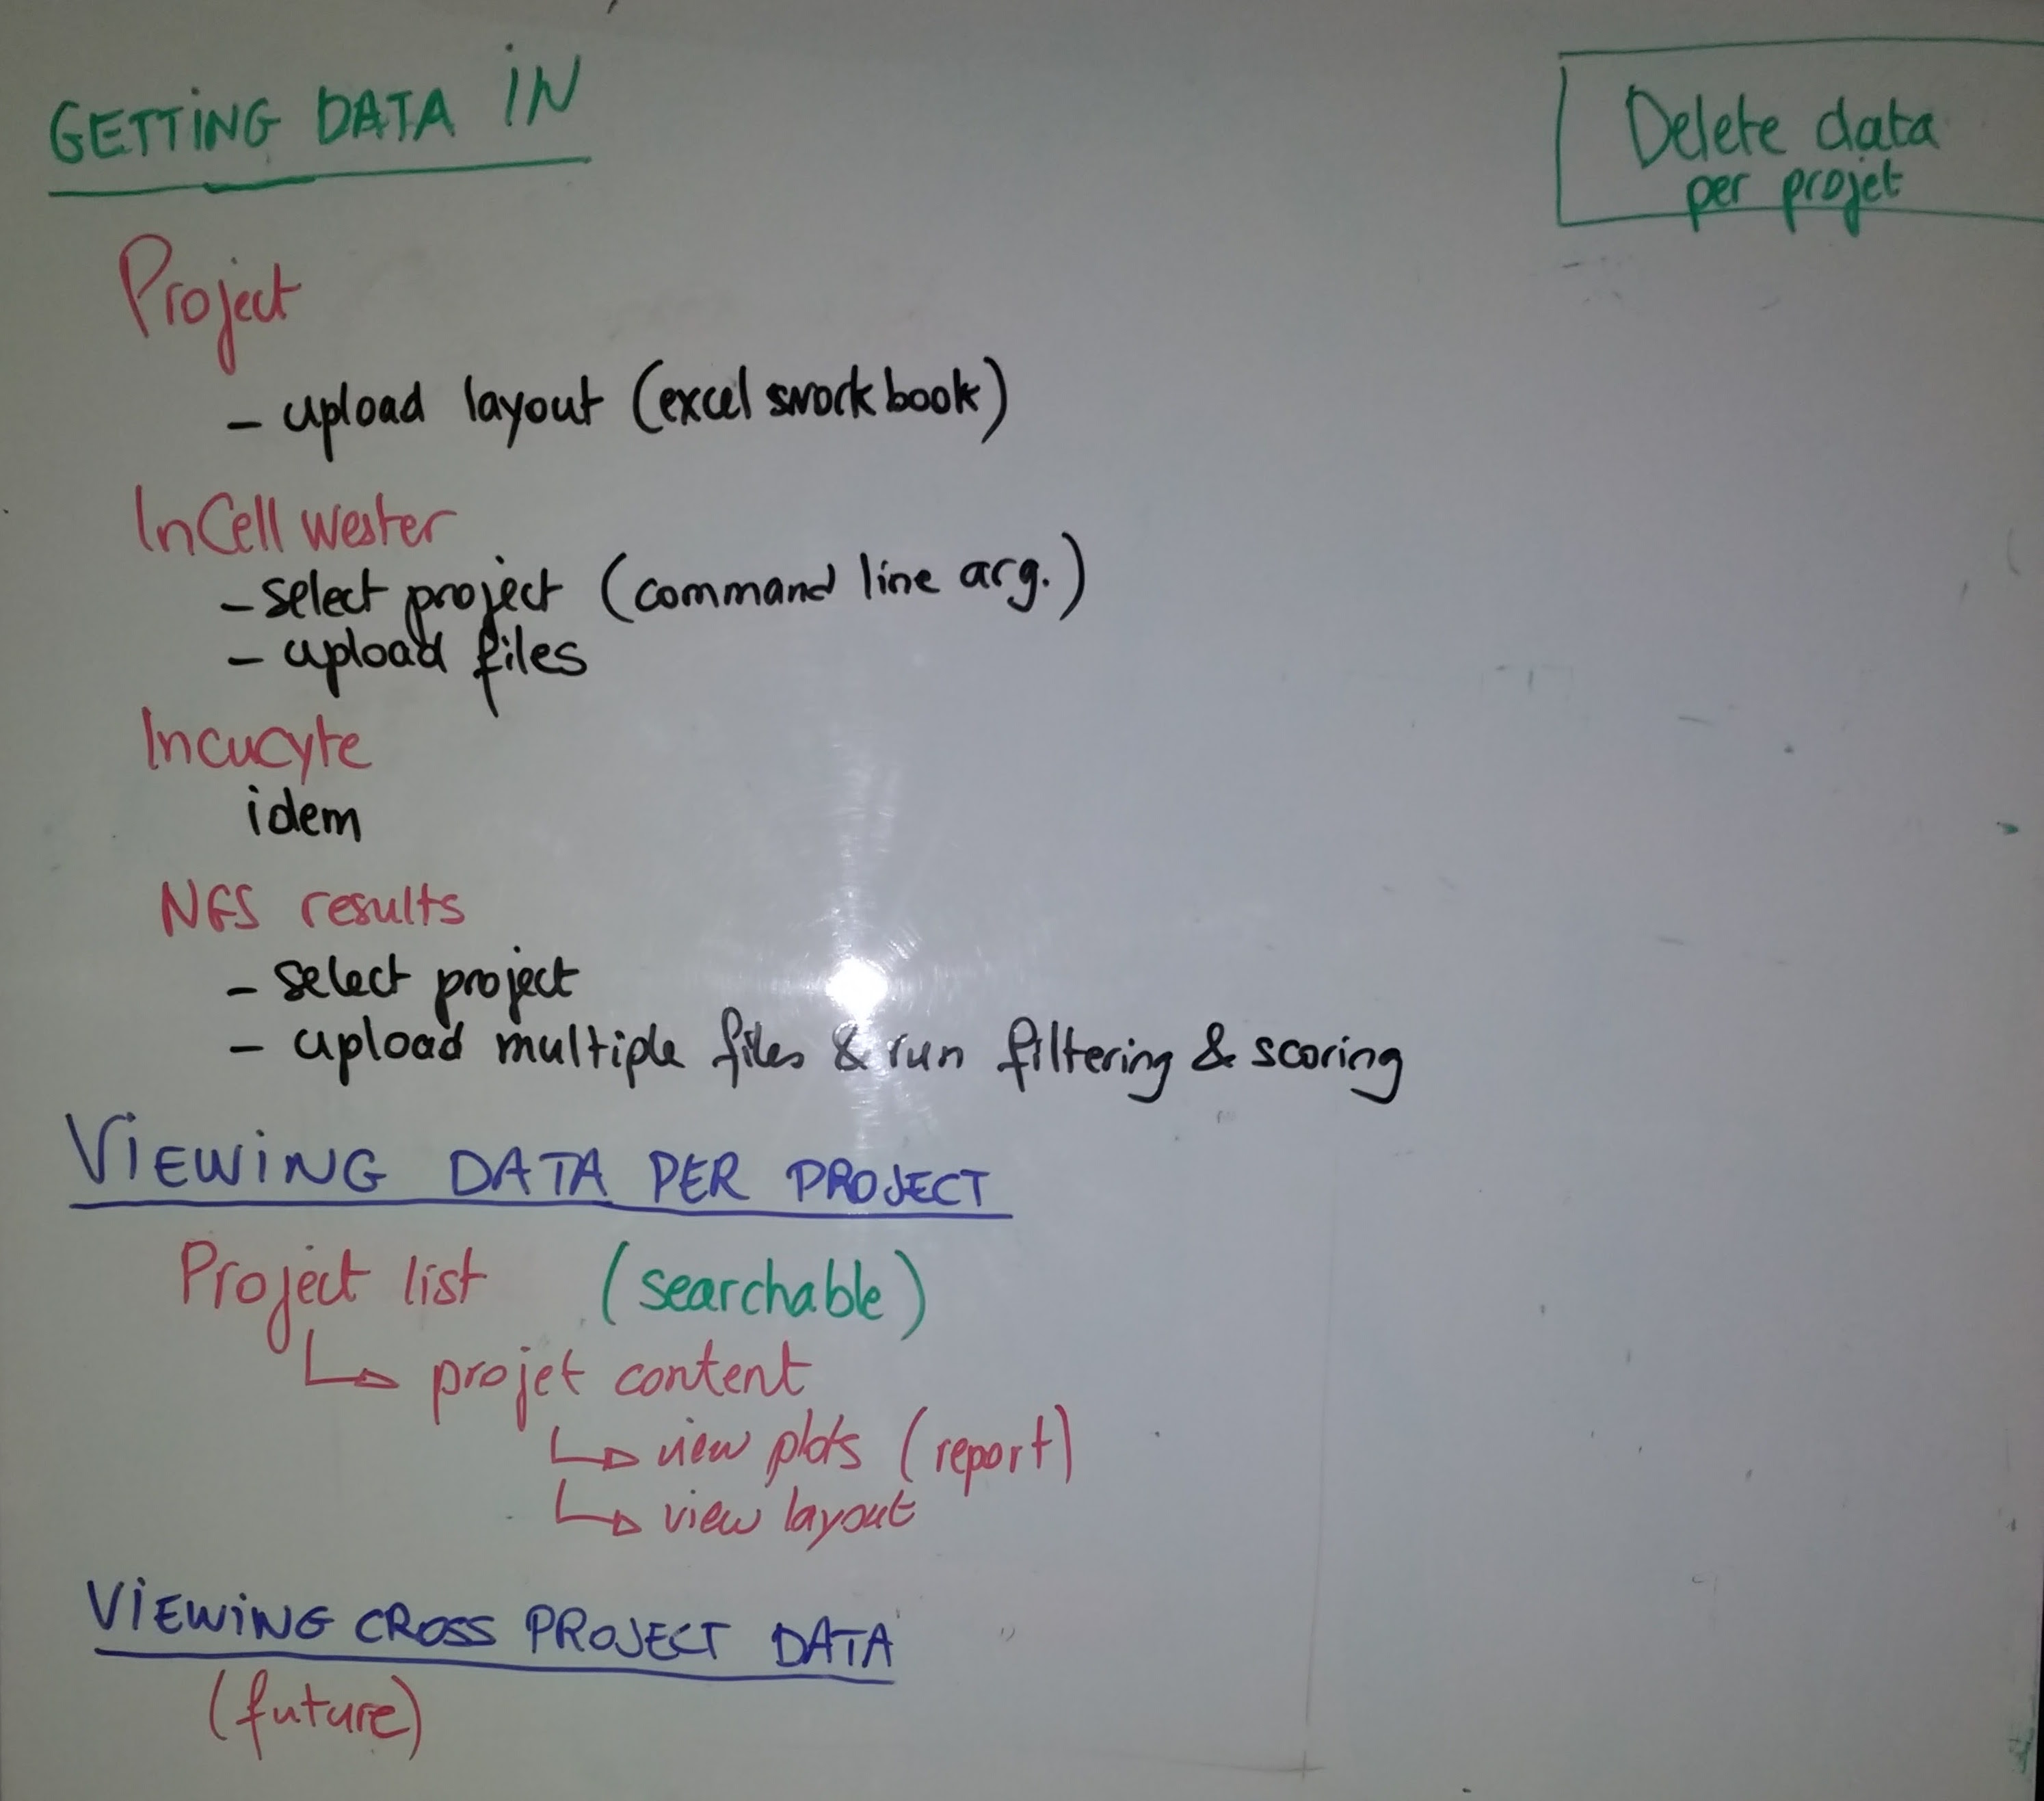 GETTiNG DATA iN
Delete data
per projet
Project
- upload layout (excel sworkbook)
InCell wester
- select project (command line arg.)
- upload files
Incucyte
idem
NGS results
- select project
- upload multiple files & run filtering & scoring
ViEWiNG DATA PER PROJECT
Project list (searchable)
↳ projet content
↳ view plots (report)
↳ view layout
ViEWiNG CROSS PROJECT DATA
(future)